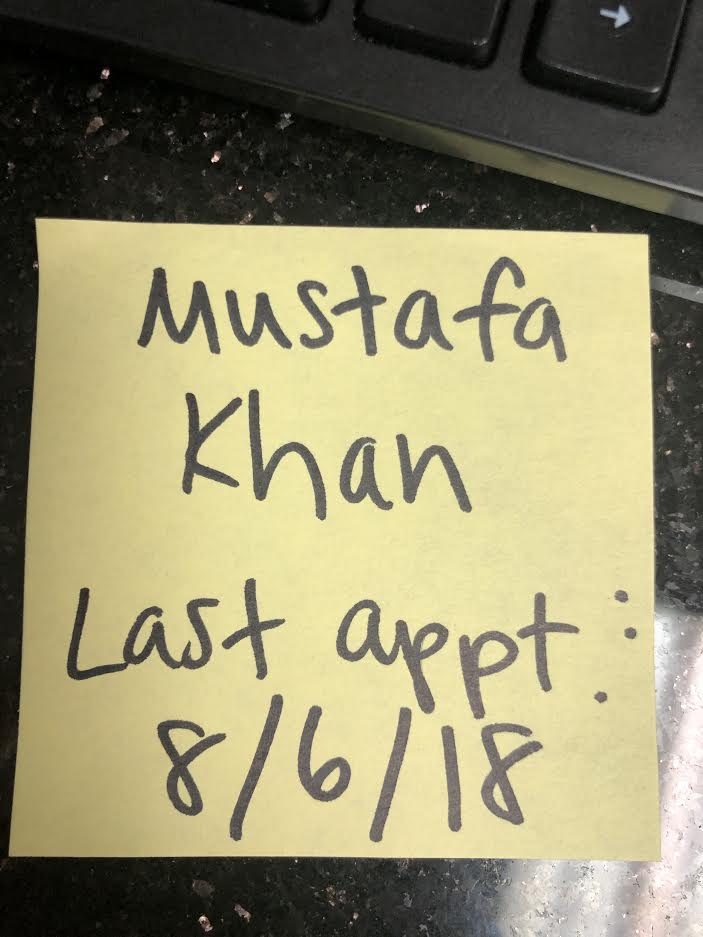 Mustafa
Khan
Last appt.:
8/6/18